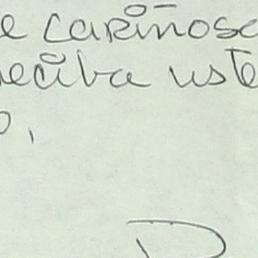 e cariñosa
reciba uste
o,